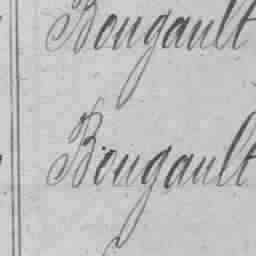 Bougault
Bougault